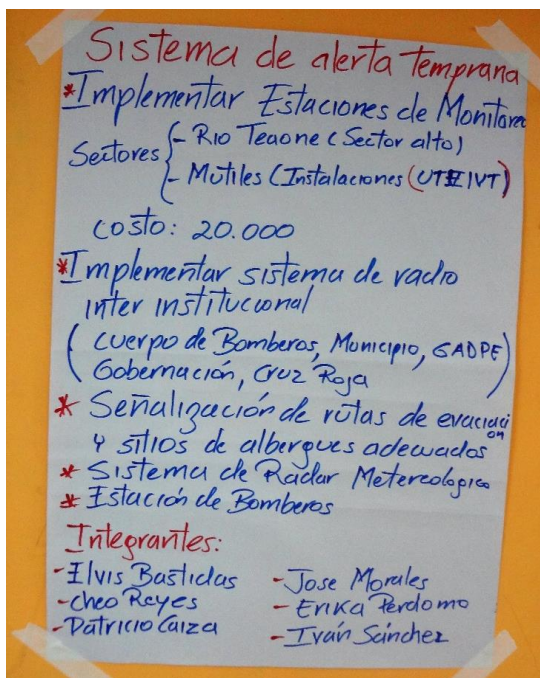 Sistema de alerta Temprana
*Implementar Estaciones de Monitoreo
Sectores { - Rio Teaone (Sector alto)
- Mutiles (Instalaciones (UTE IVT)
costo: 20.000
*Implementar sistema de radio
inter institucional
(cuerpo de Bomberos, Municipio, GADPE)
Gobernación, Cruz Roja
* Señalización de rutas de evacuación
y sitios de albergues adecuados
* Sistema de Radar Metereologico
* Estación de Bomberos
Integrantes:
-Elvis Bastidas
-Cheo Reyes
-Patricio Caiza
-Jose Morales
-Erika Perdomo
-Iván Sánchez